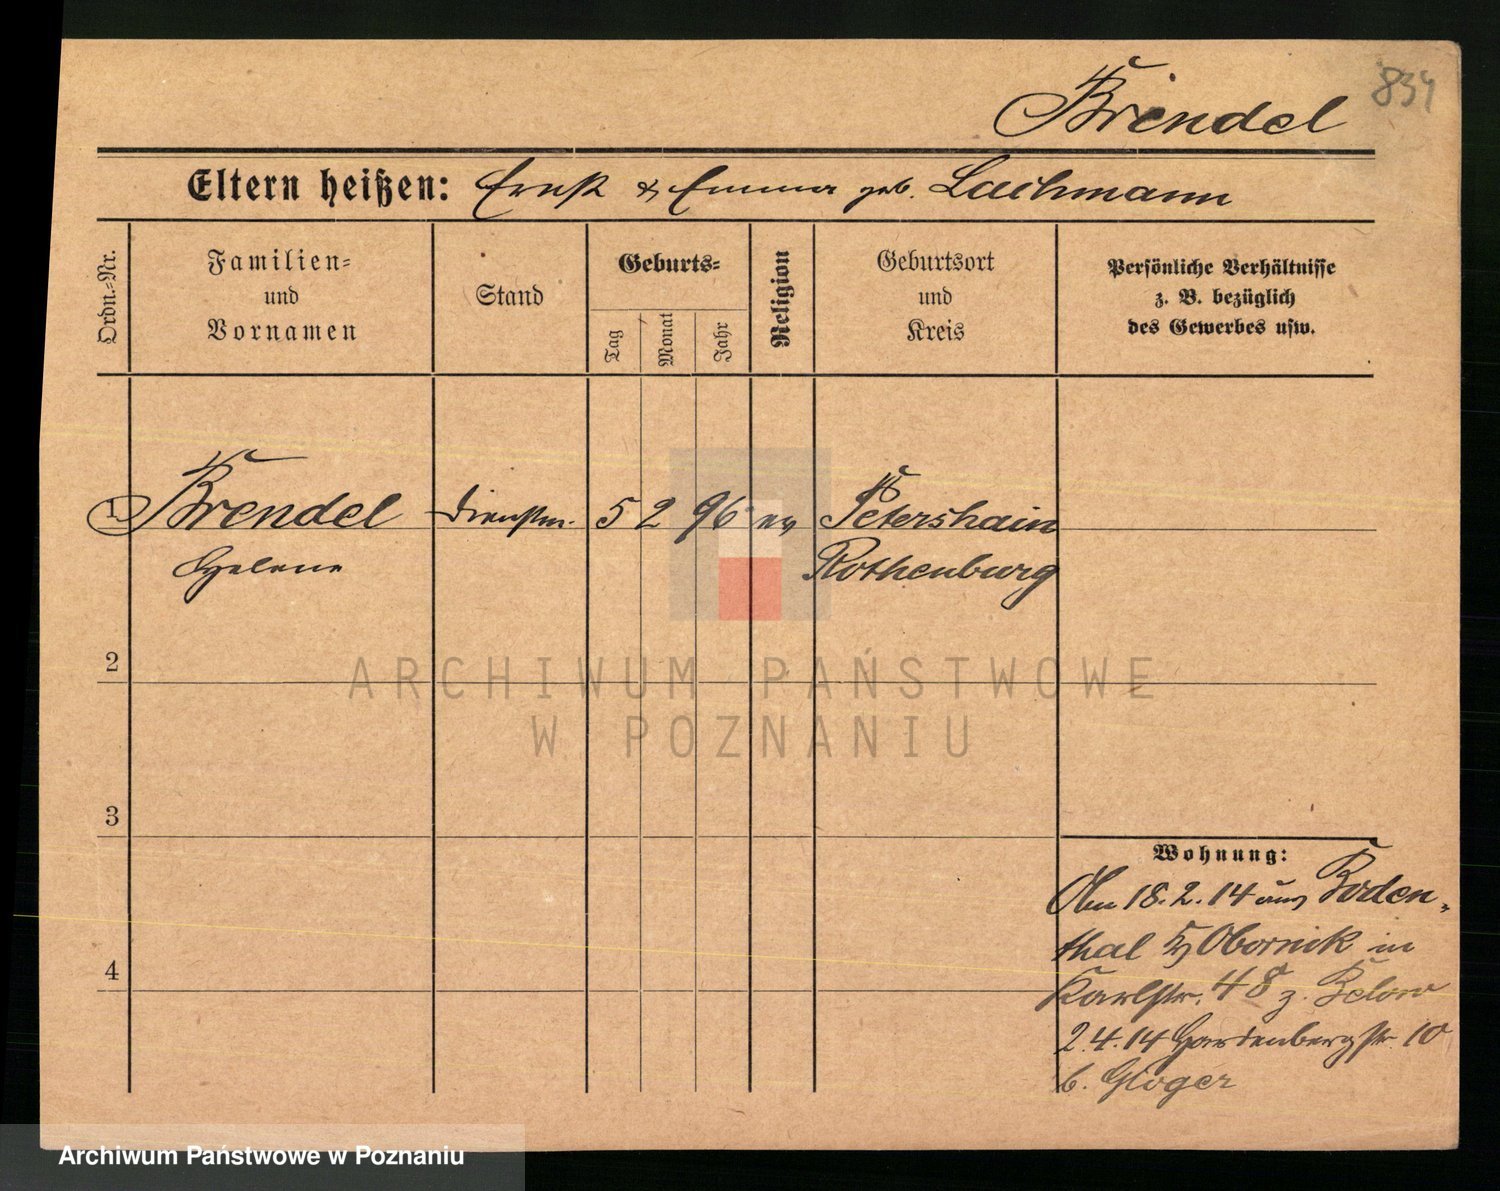 834
Brendel
Eltern heißen: Ernst & Emma geb. Lachmann
Ordn.=Nr.
Familien=
und
Vornamen
Stand
Geburts=
Tag
Monat
Jahr
Religion
Geburtsort
und
Kreis
Persönliche Verhältnisse
z. B. bezüglich
des Gewerbes usw.
1 Brendel Dienstm. 5 2 96 ev Petershain
Helene Rothenburg
2
ARCHIWUM PAŃSTWOWE
W POZNANIU
3
4
Wohnung:
Am 18.2.14 aus Boden=
thal Obornik in
Karlstr. 48 z. Below
2.4.14 Hardenbergstr. 10
b. Gloger
Archiwum Państwowe w Poznaniu